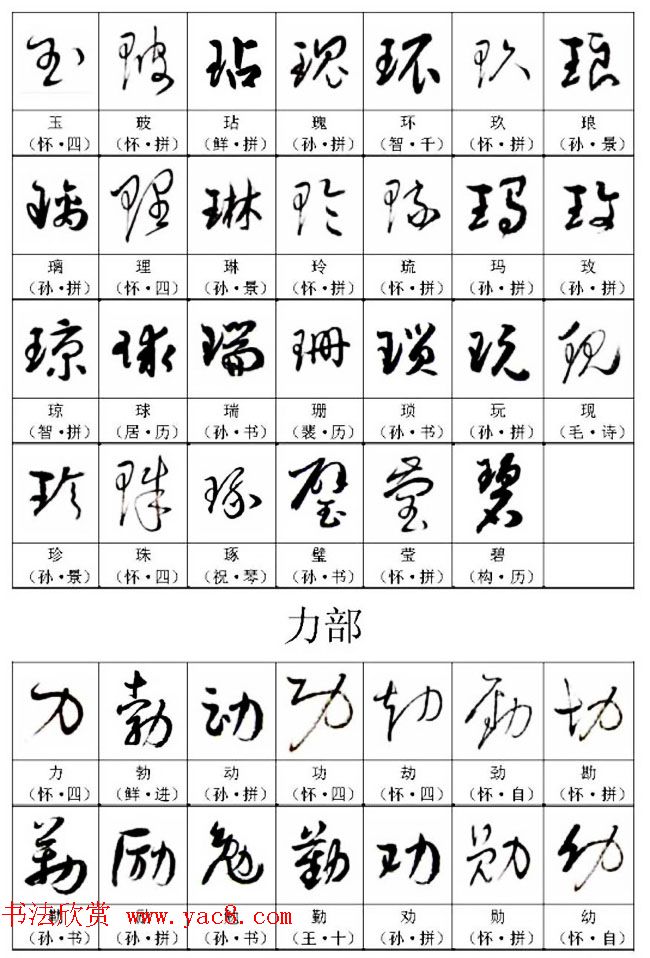 玉 玻 玷 瑰 环 玖 琅
(怀·四) (怀·拼) (鲜·拼) (孙·拼) (智·千) (怀·拼) (孙·景)
璃 理 琳 玲 琉 玛 玫
(孙·拼) (怀·四) (孙·景) (怀·拼) (怀·拼) (孙·拼) (孙·拼)
琼 球 瑞 珊 琐 玩 现
(智·拼) (居·历) (孙·书) (裴·历) (孙·书) (孙·拼) (毛·诗)
珍 珠 琢 璧 莹 碧
(孙·景) (怀·四) (祝·琴) (孙·书) (怀·拼) (构·历)
力部
力 勃 动 功 劫 劲 勘
(怀·四) (鲜·进) (孙·拼) (怀·四) (怀·四) (怀·自) (怀·拼)
勒 励 勉 勤 劝 勋 幼
书法欣赏 www.yac8.com
(孙·书) (孙·拼) (孙·书) (王·十) (孙·拼) (怀·拼) (怀·自)